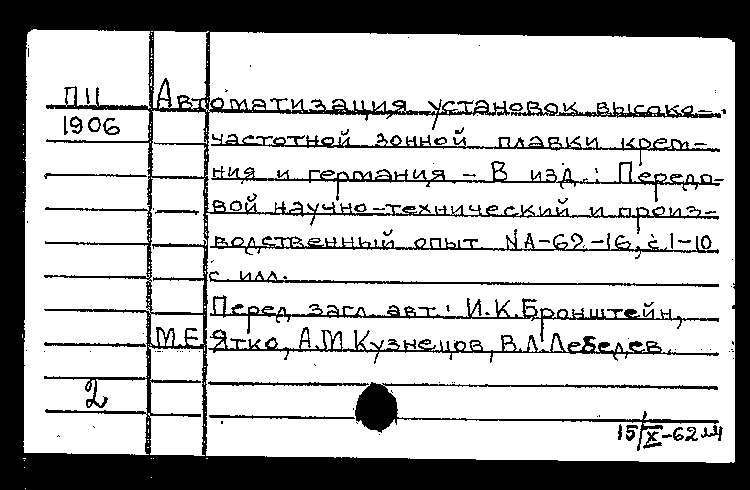 П11 Автоматизация установок высоко-
1906 частотной зонной плавки крем-
ния и германия – В изд.: Передо-
вой научно-технический и произ-
водственный опыт NА-62-16, с.1-10
с илл.
Перед загл. авт.: И.К.Бронштейн,
М.Е. Ятко, А.М.Кузнецов, В.Л.Лебедев.
2
15/X-62